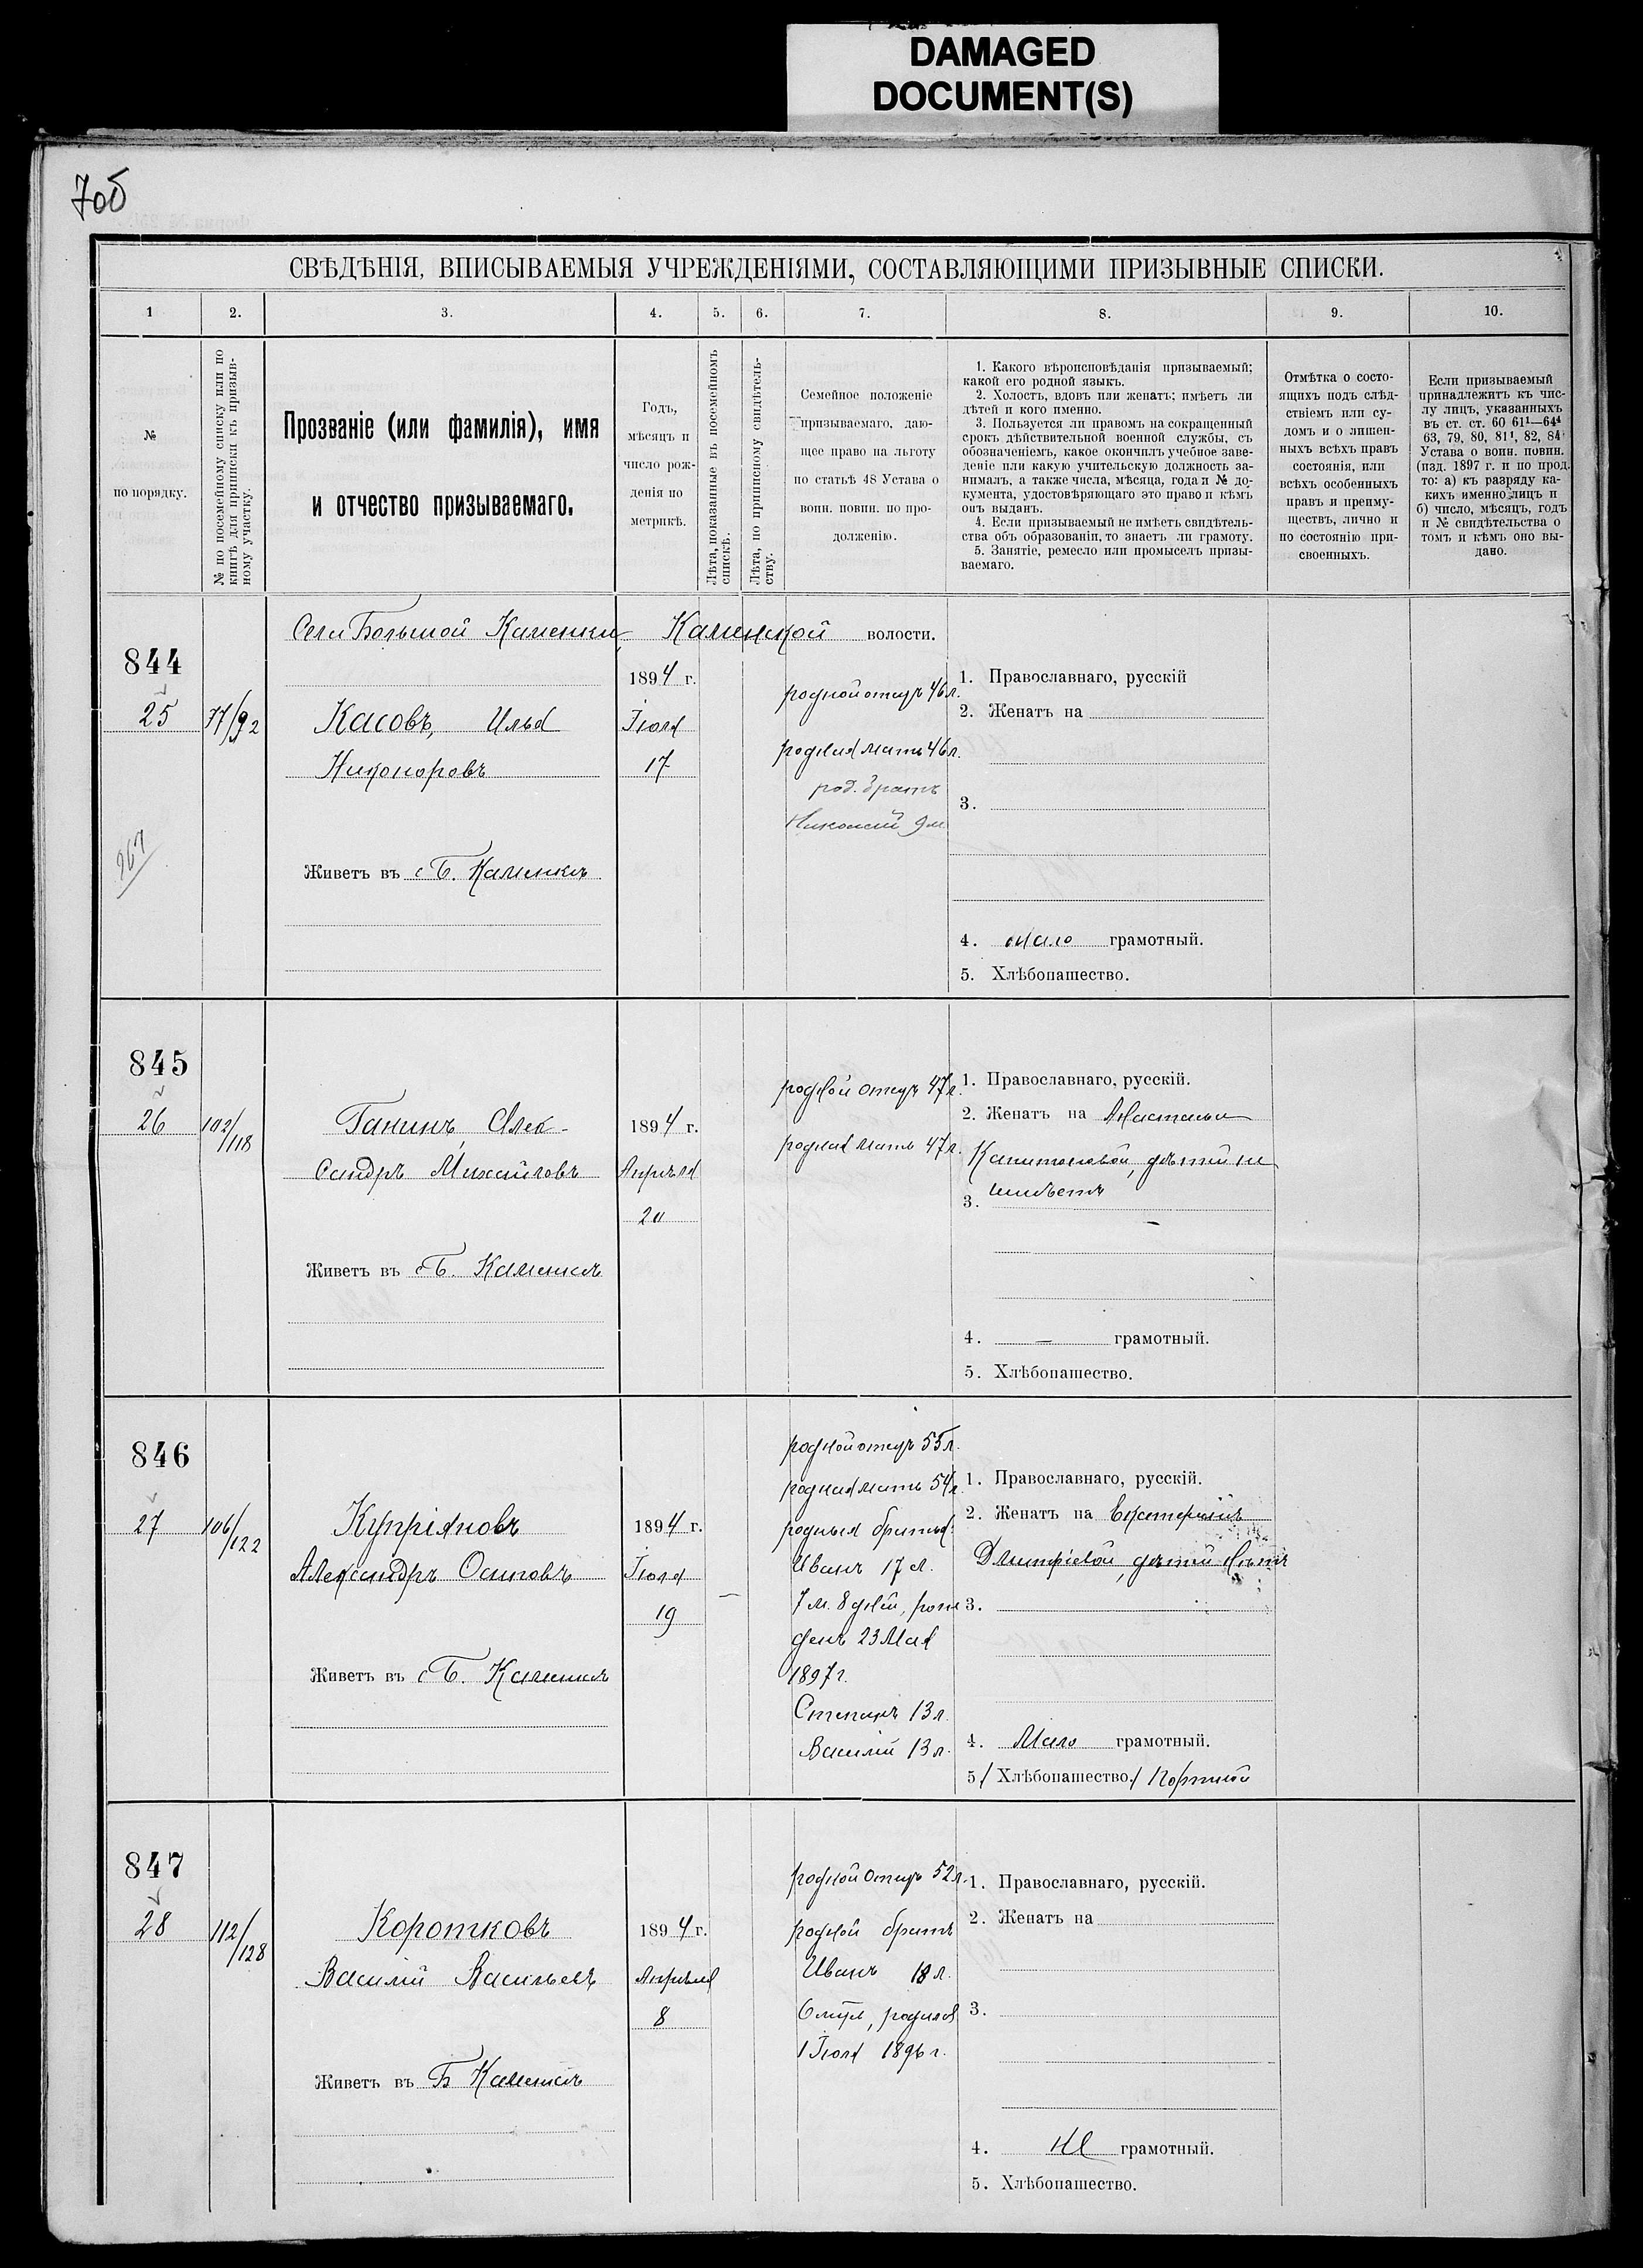 DAMAGED
DOCUMENT(S)
70б
СВѢДѢНІЯ, ВПИСЫВАЕМЫЯ УЧРЕЖДЕНІЯМИ, СОСТАВЛЯЮЩИМИ ПРИЗЫВНЫЕ СПИСКИ.
1
2.
3.
4.
5.
6.
7.
8.
9.
10.
№
по порядку.
№ по посемейному списку или по
книгѣ для приписки къ призыв-
ному участку.
Прозваніе (или фамилія), имя
и отчество призываемаго.
Годъ,
мѣсяцъ и
число рож-
денія по
метрикѣ.
Лѣта, показанные въ посемейномъ
спискѣ.
Лѣта, по приписному свидѣтель-
ству.
Семейное положеніе
призываемаго, даю-
щее право на льготу
по статьѣ 48 Устава о
воин. повин. по про-
долженію.
1. Какого вѣроисповѣданія призываемый;
какой его родной языкъ.
2. Холостъ, вдовъ или женатъ; имѣетъ ли
дѣтей и кого именно.
3. Пользуется ли правомъ на сокращенный
срокъ дѣйствительной военной службы, съ
обозначеніемъ, какое окончилъ учебное заве-
деніе или какую учительскую должность за-
нималъ, а также числа, мѣсяца, года и № до-
кумента, удостовѣряющаго это право и кѣмъ
онъ выданъ.
4. Если призываемый не имѣетъ свидѣтель-
ства объ образованіи, то знаетъ ли грамоту.
5. Занятіе, ремесло или промыселъ призы-
ваемаго.
Отмѣтка о состо-
ящихъ подъ слѣд-
ствіемъ или су-
домъ и о лишен-
ныхъ всѣхъ правъ
состоянія, или
всѣхъ особенныхъ
правъ и преиму-
ществъ, лично и
по состоянію при-
своенныхъ.
Если призываемый
принадлежитъ къ чис-
лу лицъ, указанныхъ
въ ст. ст. 60 61¹—64⁴
63, 79, 80, 81¹, 82, 84
Устава о воин. повин.
(изд. 1897 г. и по прод.
то: а) къ разряду ка-
кихъ именно лицъ и
б) число, мѣсяцъ, годъ
и № свидѣтельства о
томъ и кѣмъ оно вы-
дано.
Села Большой Каменки, Каменской волости.
844
25
77/92
Касовъ, Илья
Никоноровъ
Живетъ въ с Б. Каменкѣ
1894 г.
Іюля
17
родной отецъ 46 л.
родная мать 46 л.
род. братъ
Николай 9 м
1. Православнаго, русскій
2. Женатъ на
3.
4. мало грамотный.
5. Хлѣбопашество.
845
26
102/118
Ганинъ, Алек-
сандръ Михайловъ
Живетъ въ с Б. Каменкѣ
1894 г.
Апрѣля
20
родной отецъ 47 л.
родная мать 47 л.
1. Православнаго, русскій.
2. Женатъ на Настасьи
Капитоновой, дѣтей не
имѣетъ
3. —
4. — грамотный.
5. Хлѣбопашество.
846
27
106/122
Купріяновъ
Александръ Осиповъ
Живетъ въ с Б. Каменкѣ
1894 г.
Іюля
19
—
родной отецъ 55 л.
родная мать 54 л.
родные братья:
Иванъ 17 л.
7 м. 8 дней, рож
денъ 23 Мая
1897 г.
Степанъ 13 л.
Василій 13 л.
1. Православнаго, русскій.
2. Женатъ на Екатеринѣ
Дмитріевой, дѣтей нѣтъ
3.
4. Мало грамотный.
5/ Хлѣбопашество./ Портной
847
28
112/128
Коротковъ
Василій Васильевъ
Живетъ въ Б Каменкѣ
1894 г.
Апрѣля
8
родной отецъ 52 л.
родной братъ
Иванъ 18 л.
1 Іюля 1896 г.
1. Православнаго, русскій.
2. Женатъ на
3.
4. не грамотный.
5. Хлѣбопашество.